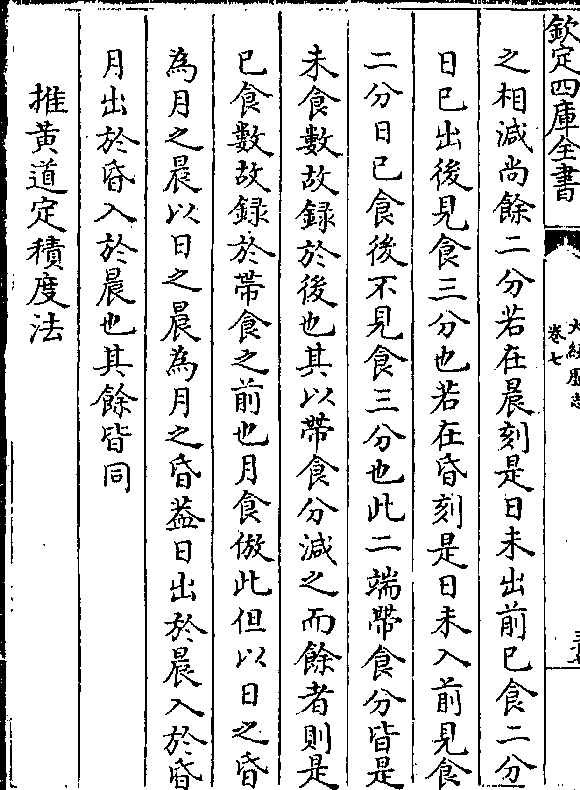 欽定四庫全書
卷七
之相減尚餘二分若在晨刻是日未出前已食二分
日已出後見食三分也若在昏刻是日未入前見食
二分日已食後不見食三分也此二端帶食分皆是
未食數故録於後也其以帶食分減之而餘者則是
已食數故録於帶食之前也月食倣此但以日之昏
為月之晨以日之晨為月之昏葢日出於晨入於昏
月出於昏入於晨也其餘皆同
推黄道定積度法